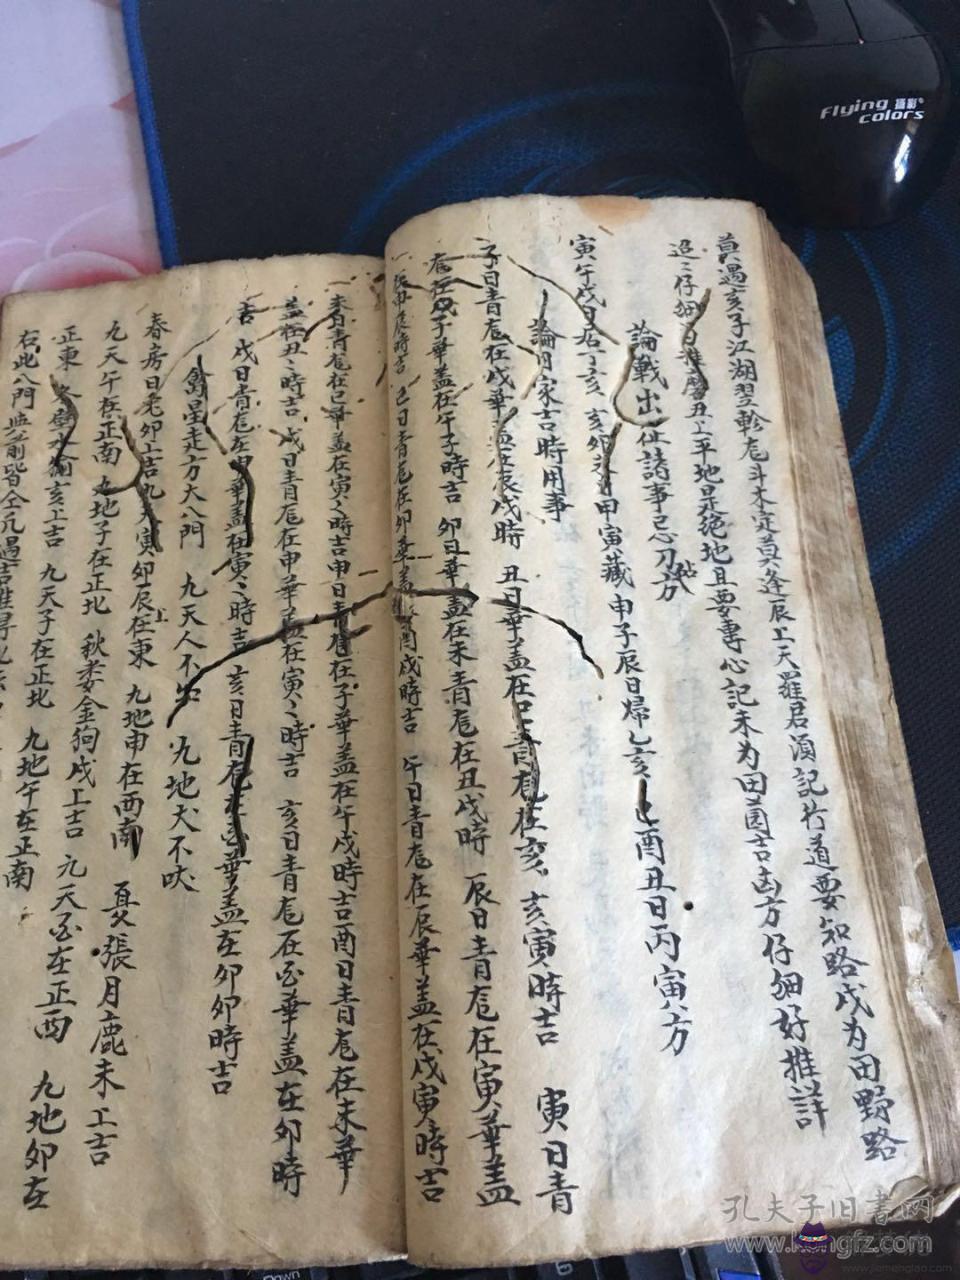 莫遇亥子江湖翌軫危斗木定莫逢辰上天羅君須記行道要知路戌为田野路
迢〻仔細日推磨丑上平地是绝地且要專心記未为田園吉凶方仔細好推詳
論戰出征諸事忌刀砧方
寅午戌日居丁亥 亥卯未日甲寅藏 申子辰日歸乙亥 巳酉丑日丙寅方
論月家吉時用事
子日青危在戌華盖在辰戌時 丑日華盖在巳青危在亥亥寅時吉 寅日青
危在戌子華盖在午子時吉 卯日華盖在未青危在丑戌時 辰日青危在寅華盖
在申辰時吉 巳日青危在卯華盖酉戌時吉 午日青危在辰華盖在戌寅時吉
一未日青危在巳華盖在寅〻時吉申日青危在子華盖在午戌時吉酉日青危在未華
盖在丑〻時吉 戌日青危在申華盖在寅〻時吉 亥日青危在酉華盖在卯時
吉 戌日青危在申華盖在寅〻時吉 亥日青危在酉華盖在卯卯時吉
禽星走方大八門 九天人不知 九地犬不吠
春房日兎卯上吉九天寅卯辰在東 九地申在西南 夏張月鹿未上吉
九天午在正南 九地子在正北 秋娄金狗戌上吉 九天酉在正西 九地卯在
正東 冬壁水㺄亥上吉 九天子在正北 九地午在正南
右此八門與前皆仝凡遇吉推尋
Flying 攝彩
colors
孔夫子旧書网
www.kongfz.com
www.jiemengtao.com
Down